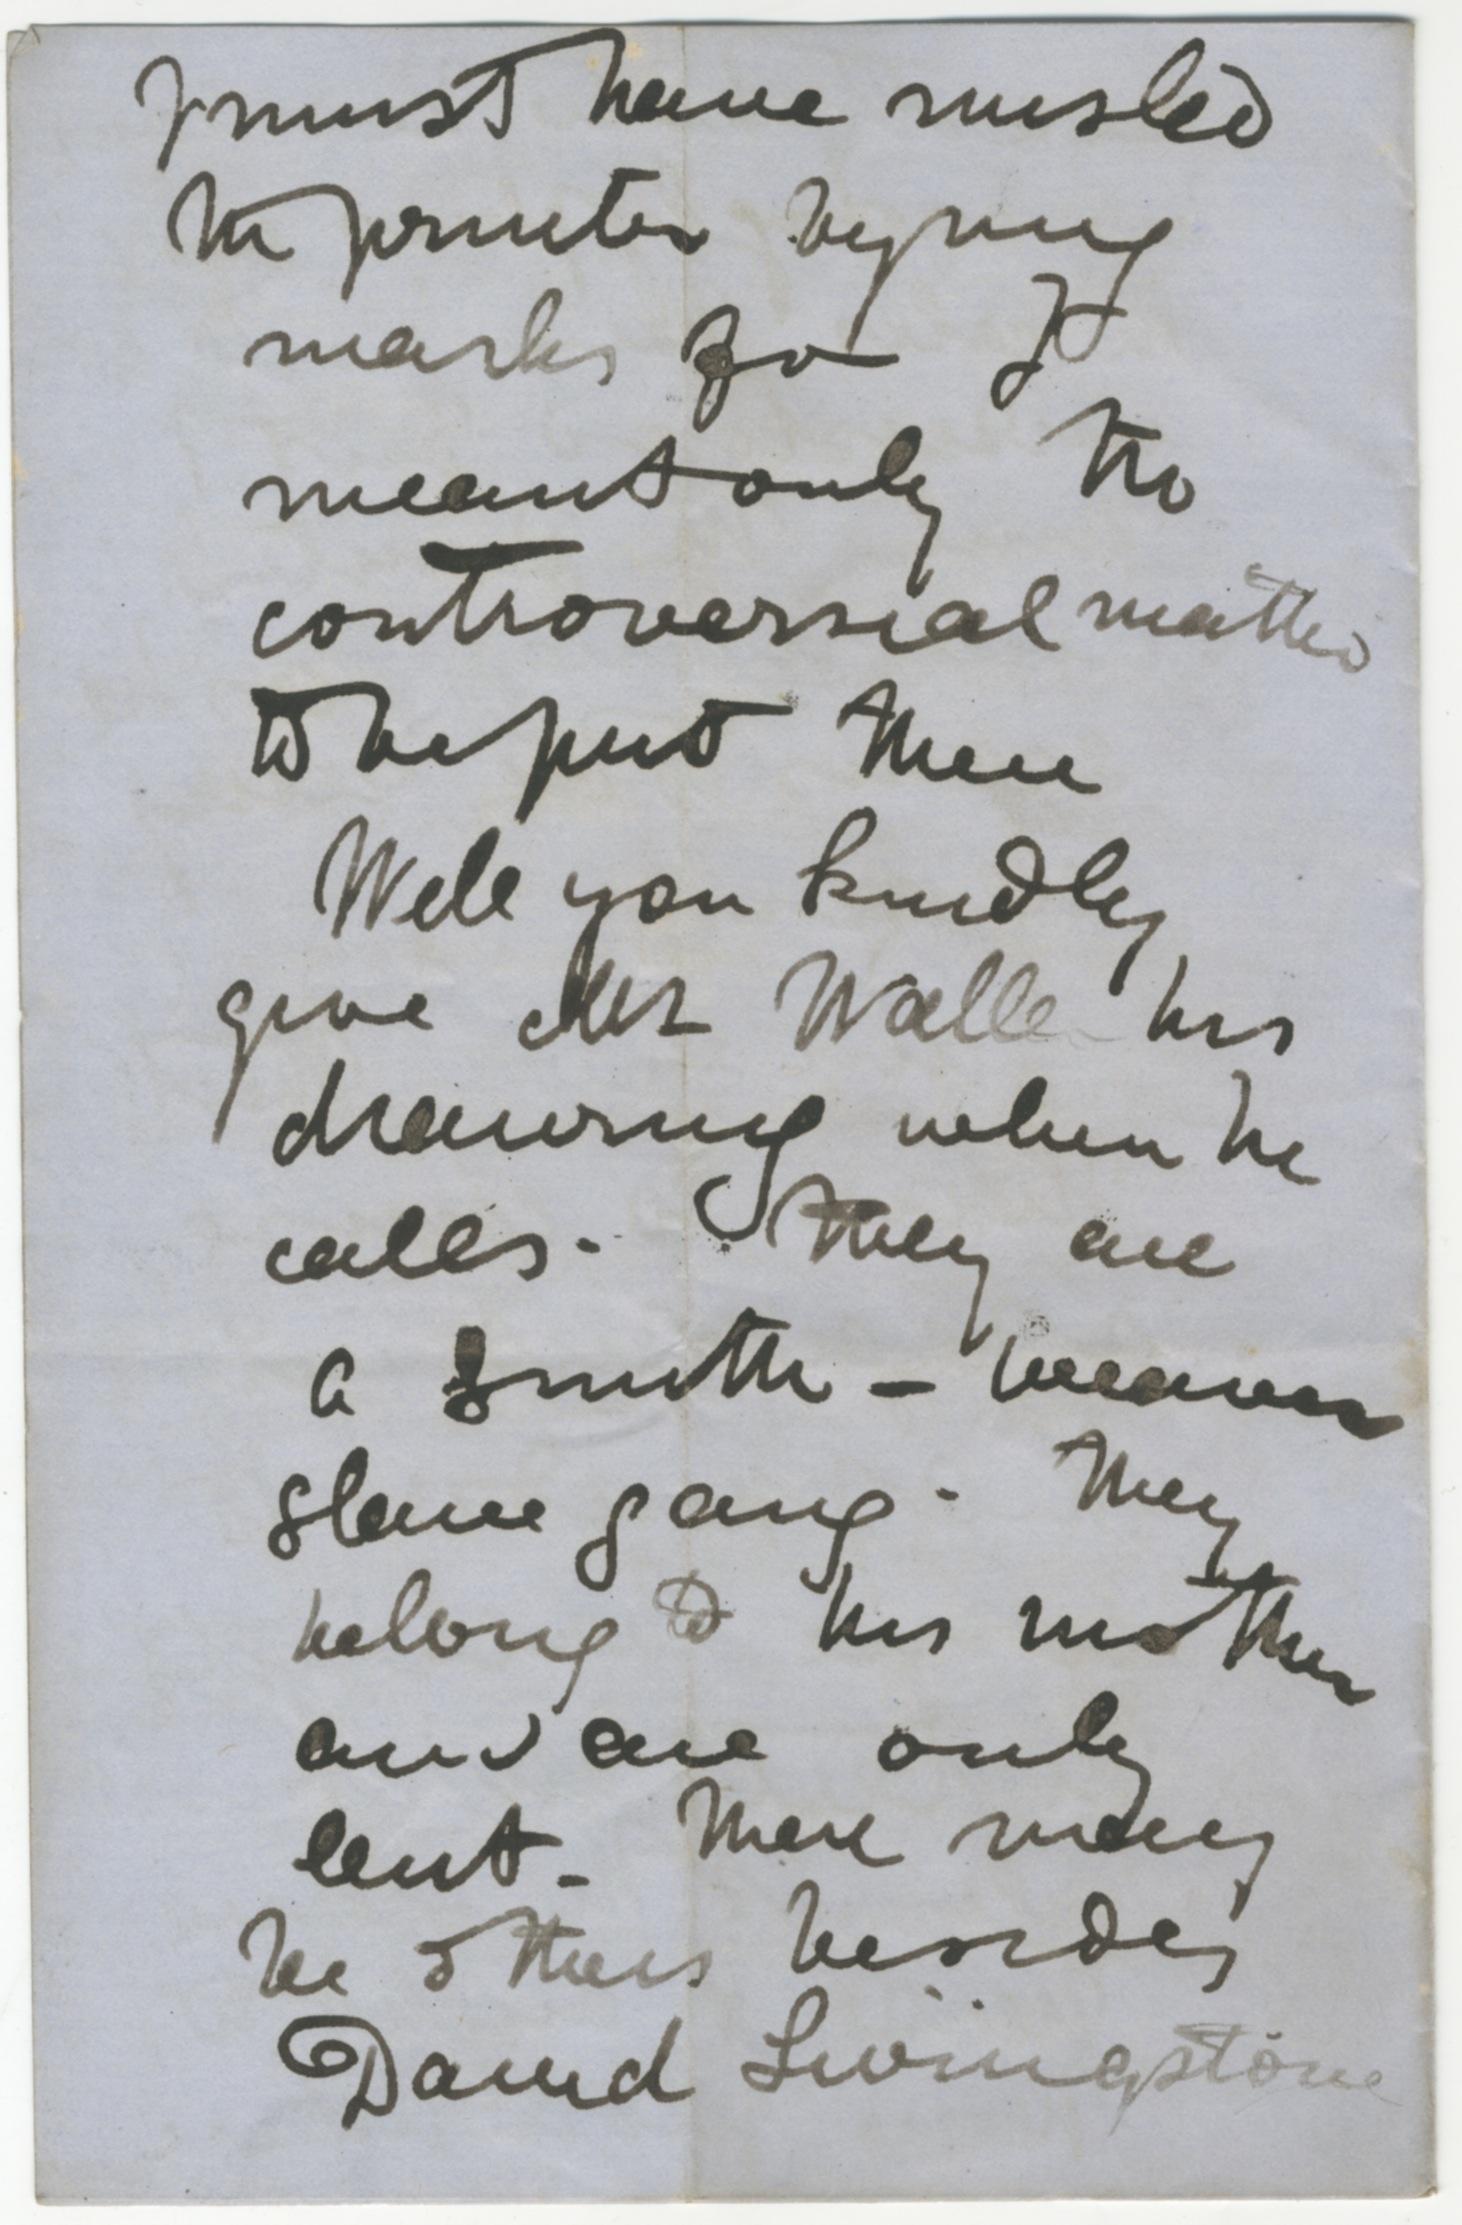 I must have misled
the printer by my
marks for I
meant only the
controversial matter
to be put there
Will you kindly
give Mr Waller his
drawing when he
calls. They are
a smith - weaver
slave gang. They
belong to his mother
and are only
lent - There may
be others besides
David Livingstone